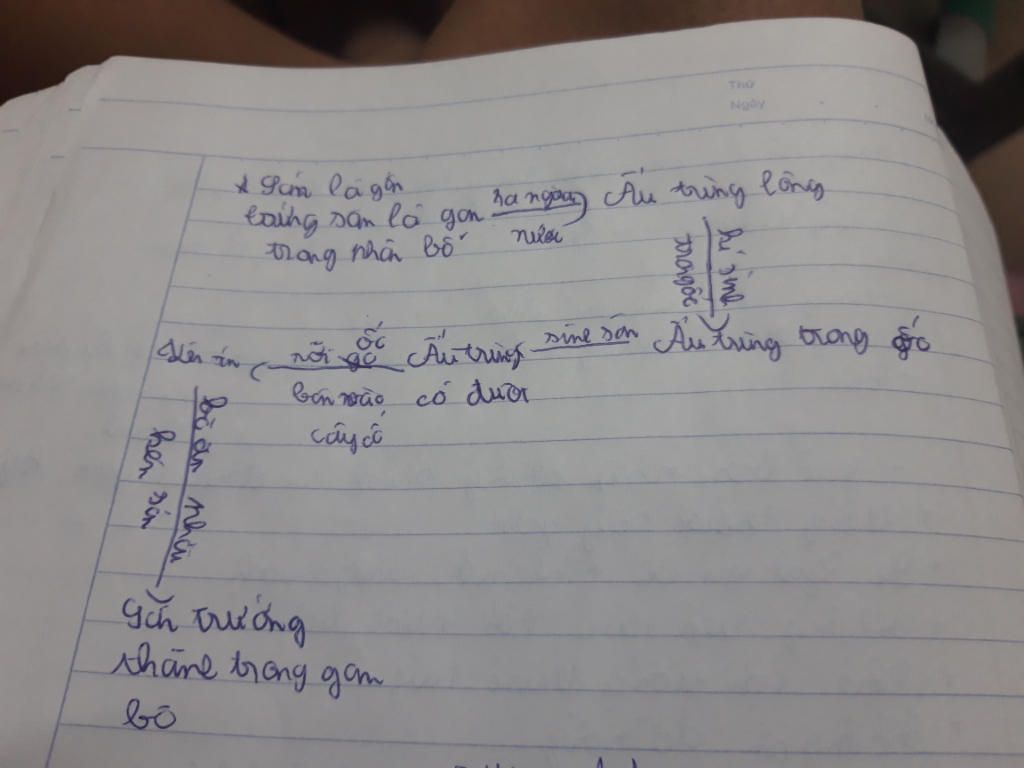 Thứ
Ngày
* Sán lá gan
trứng sán lá gan ra ngoài Ấu trùng lông
trong phân bò nước
kí sinh
trong ốc
rời ốc Ấu trùng sinh sản Ấu trùng trong ốc
bám vào có đuôi
cây cỏ
bò ăn phải
kén sán
Sán trưởng
thành trong gan
bò